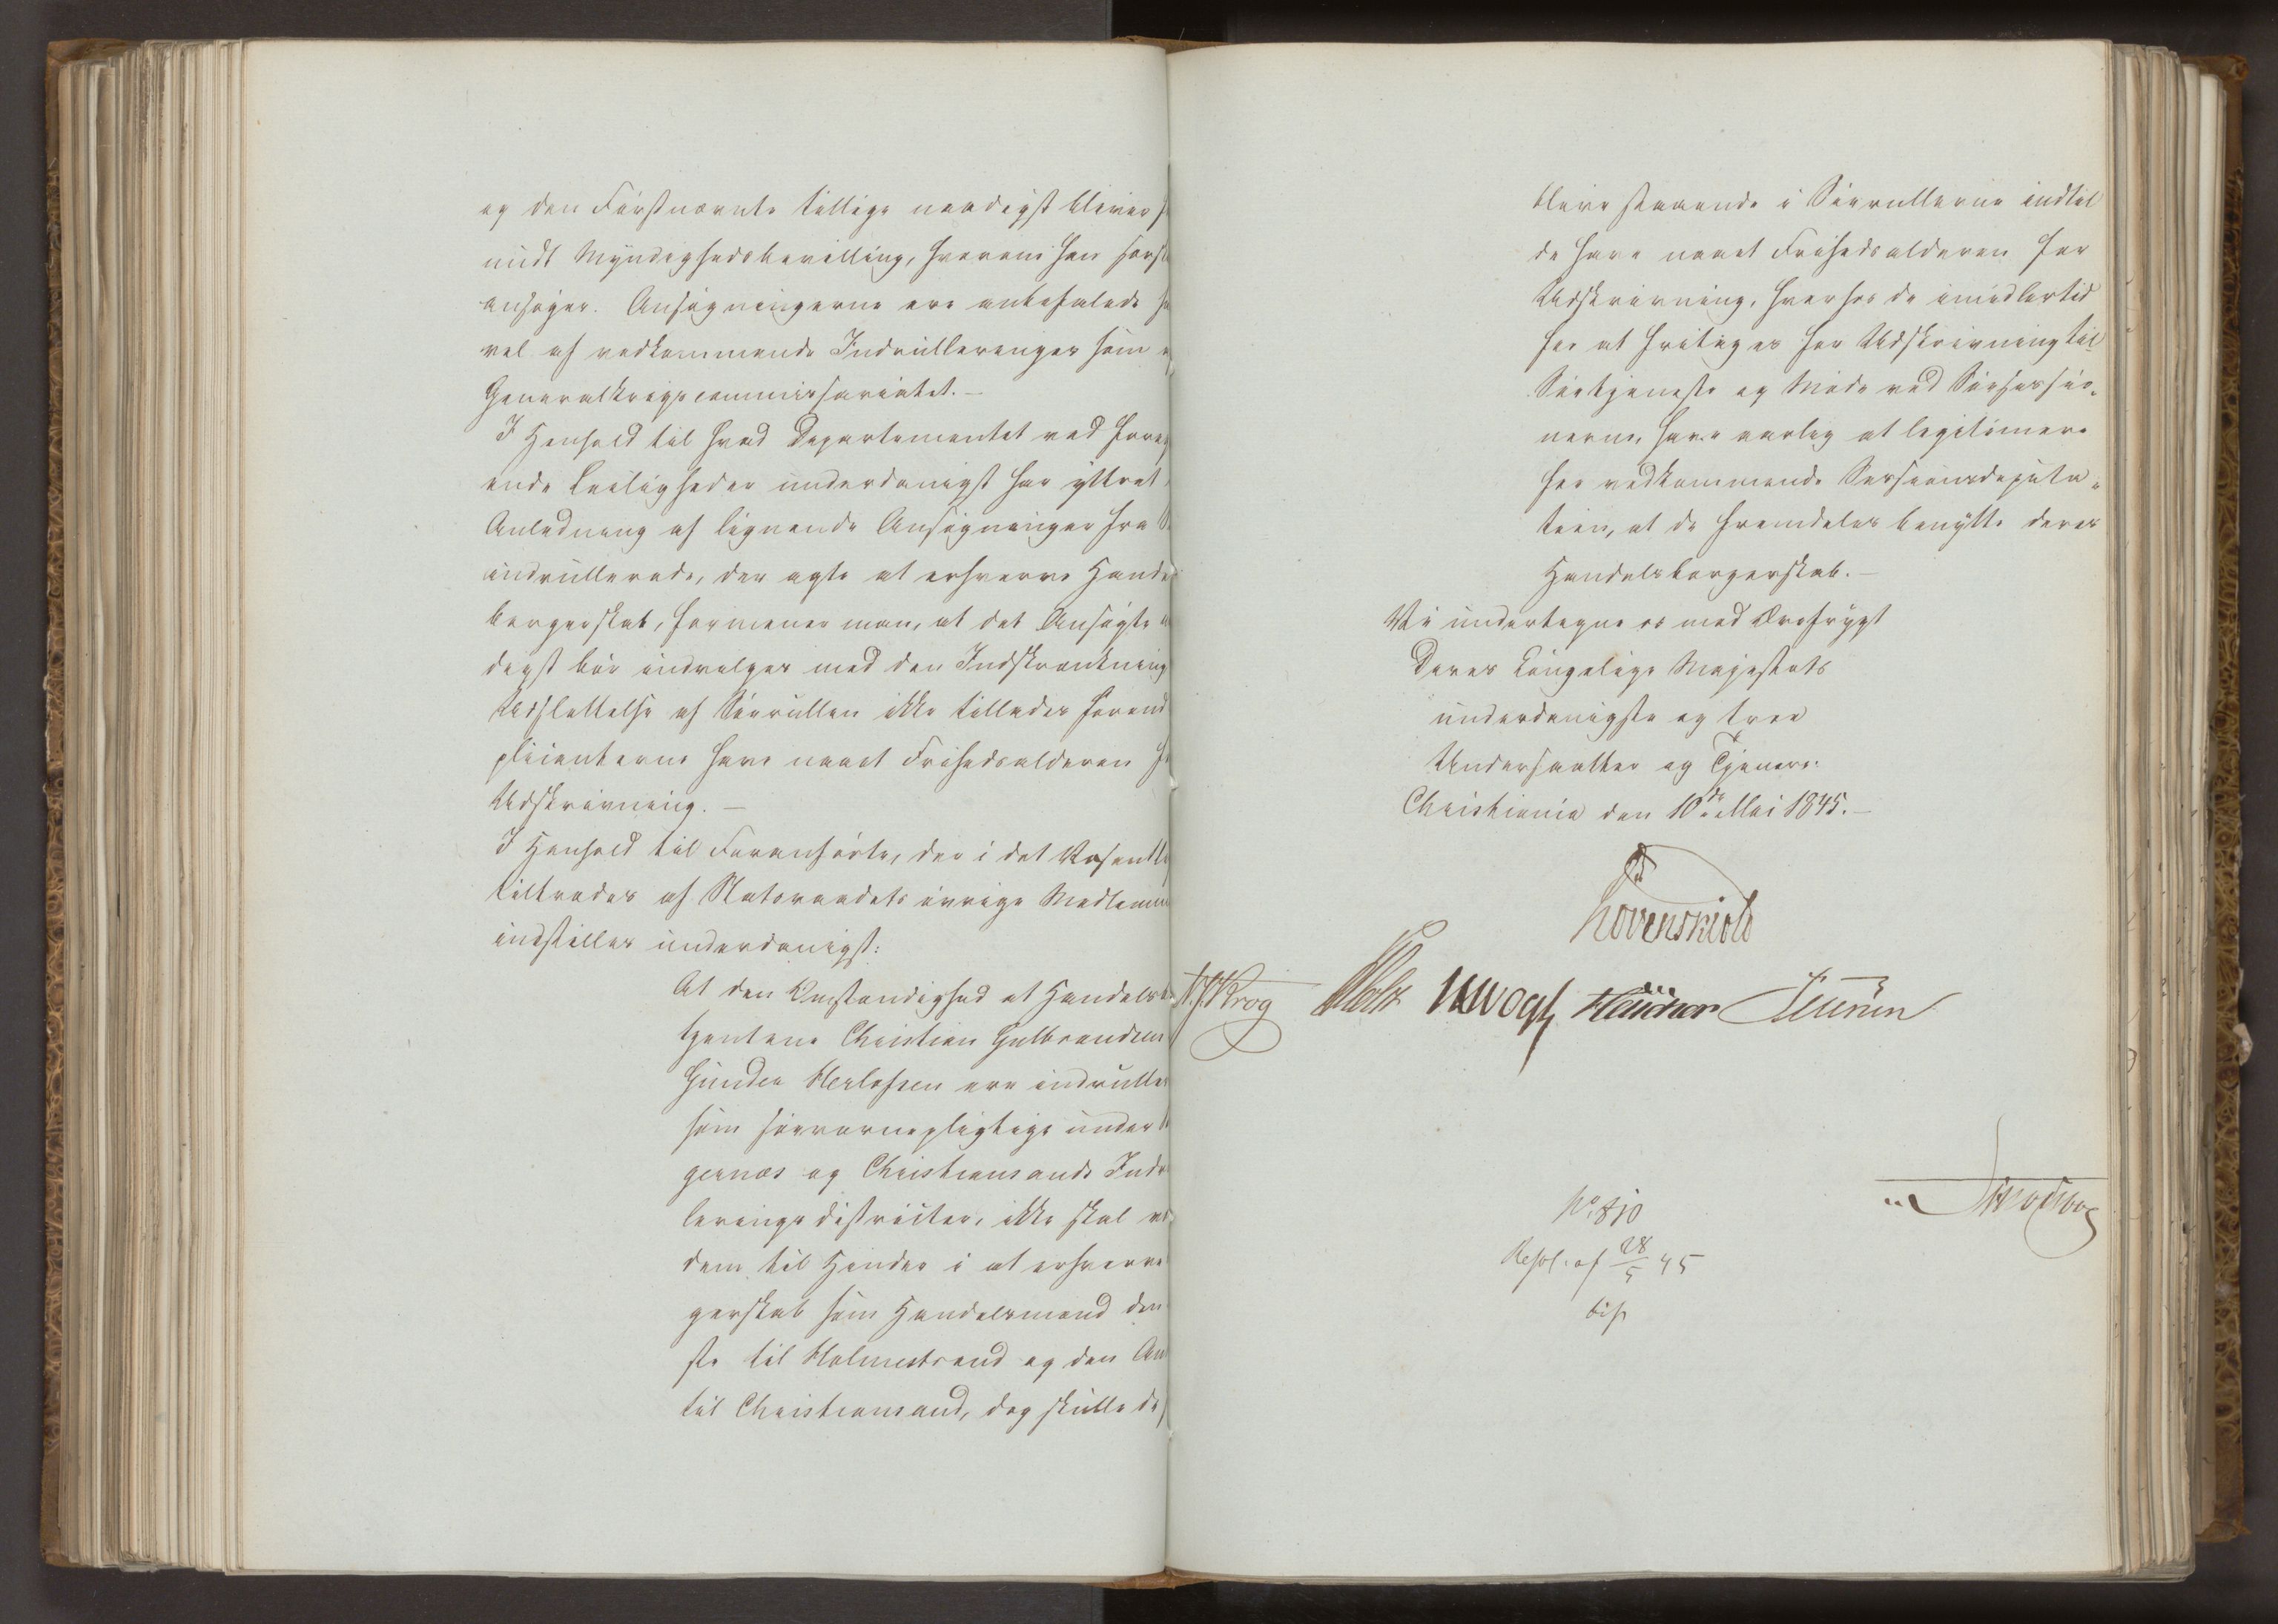 og den Førstnævnte tillige naadigst bliver
meddt Myndighedsbevilling, hvorom han
ansøger. Ansøgningerne ere anbefalede
vel af vedkommende Indrulleringer som
Generalkrigscommissariatet.—
I Henhold til hvad Departementet ved
ende Leiligheder underdanigst har yttret
Anledning af lignende Ansøgninger fra
indrullerede, der agte at erhverve Handels
borgerskab, formener man, at det Ansøgte
digst bør indvilges med den Indskrænkning
Udslettelse af Søerullen ikke tillades forend
plicanterne have naaet Frihedsalderen
Udskrivning.—
I Henhold til Foranførte, der i det Væsentl
tiltrædes af Statsraadets øvrige Medlemm
indstilles underdanigst:
At den Omstændighed at Handels
tjentene Christian Gulbrandsen
Gunder Herlofsen ere indrulle
som søeværnepligtige under
gernæs og Christiansands Indr
lerings districter, ikke skal
dem til Hinder i at erhverve
gerskab som Handelsmænd den
ste til Holmestrand og den An
til Christiansand, dog skulle de
blive staaende i Søerullerne indtil
de have naaet Frihedsalderen for
Udskrivning, hvorhos de imidlertid
for at fritages for Udskrivning til
Søetjeneste og Møde ved Søesessio-
nerne, have aarlig at legitimere
for vedkommende Sessionsdeputa-
tion, at de fremdeles benytte deres
Handelsborgerskab.—
Vi undertegne os med Ærefrygt
Deres Kongelige Majestæts
underdanigste og troe
Undersaatter og Tjenere.
Christiania den 10de Mai 1845.—
Løvenskiold
Krog Holst Vogt
No. 810
Resol. af 28/5 45
bif